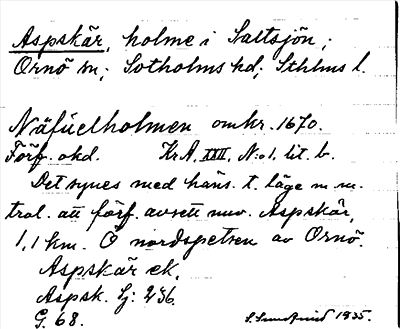 Aspskär, holme i Saltsjön;
Ornö sn; Sotholms hd; Sthlms l.
Näfuelholmen omkr. 1670.
Förf. okd. Kr.A. XXII, N:o 1, lit. b.
Det synes med häns. t. läge m. m.
trol. att förf. avsett nuv. Aspskär,
1,1 km. O nordspetsen av Ornö.
Aspskär ek.
Aspsk. Lj: 236.
G. 68. 1935.